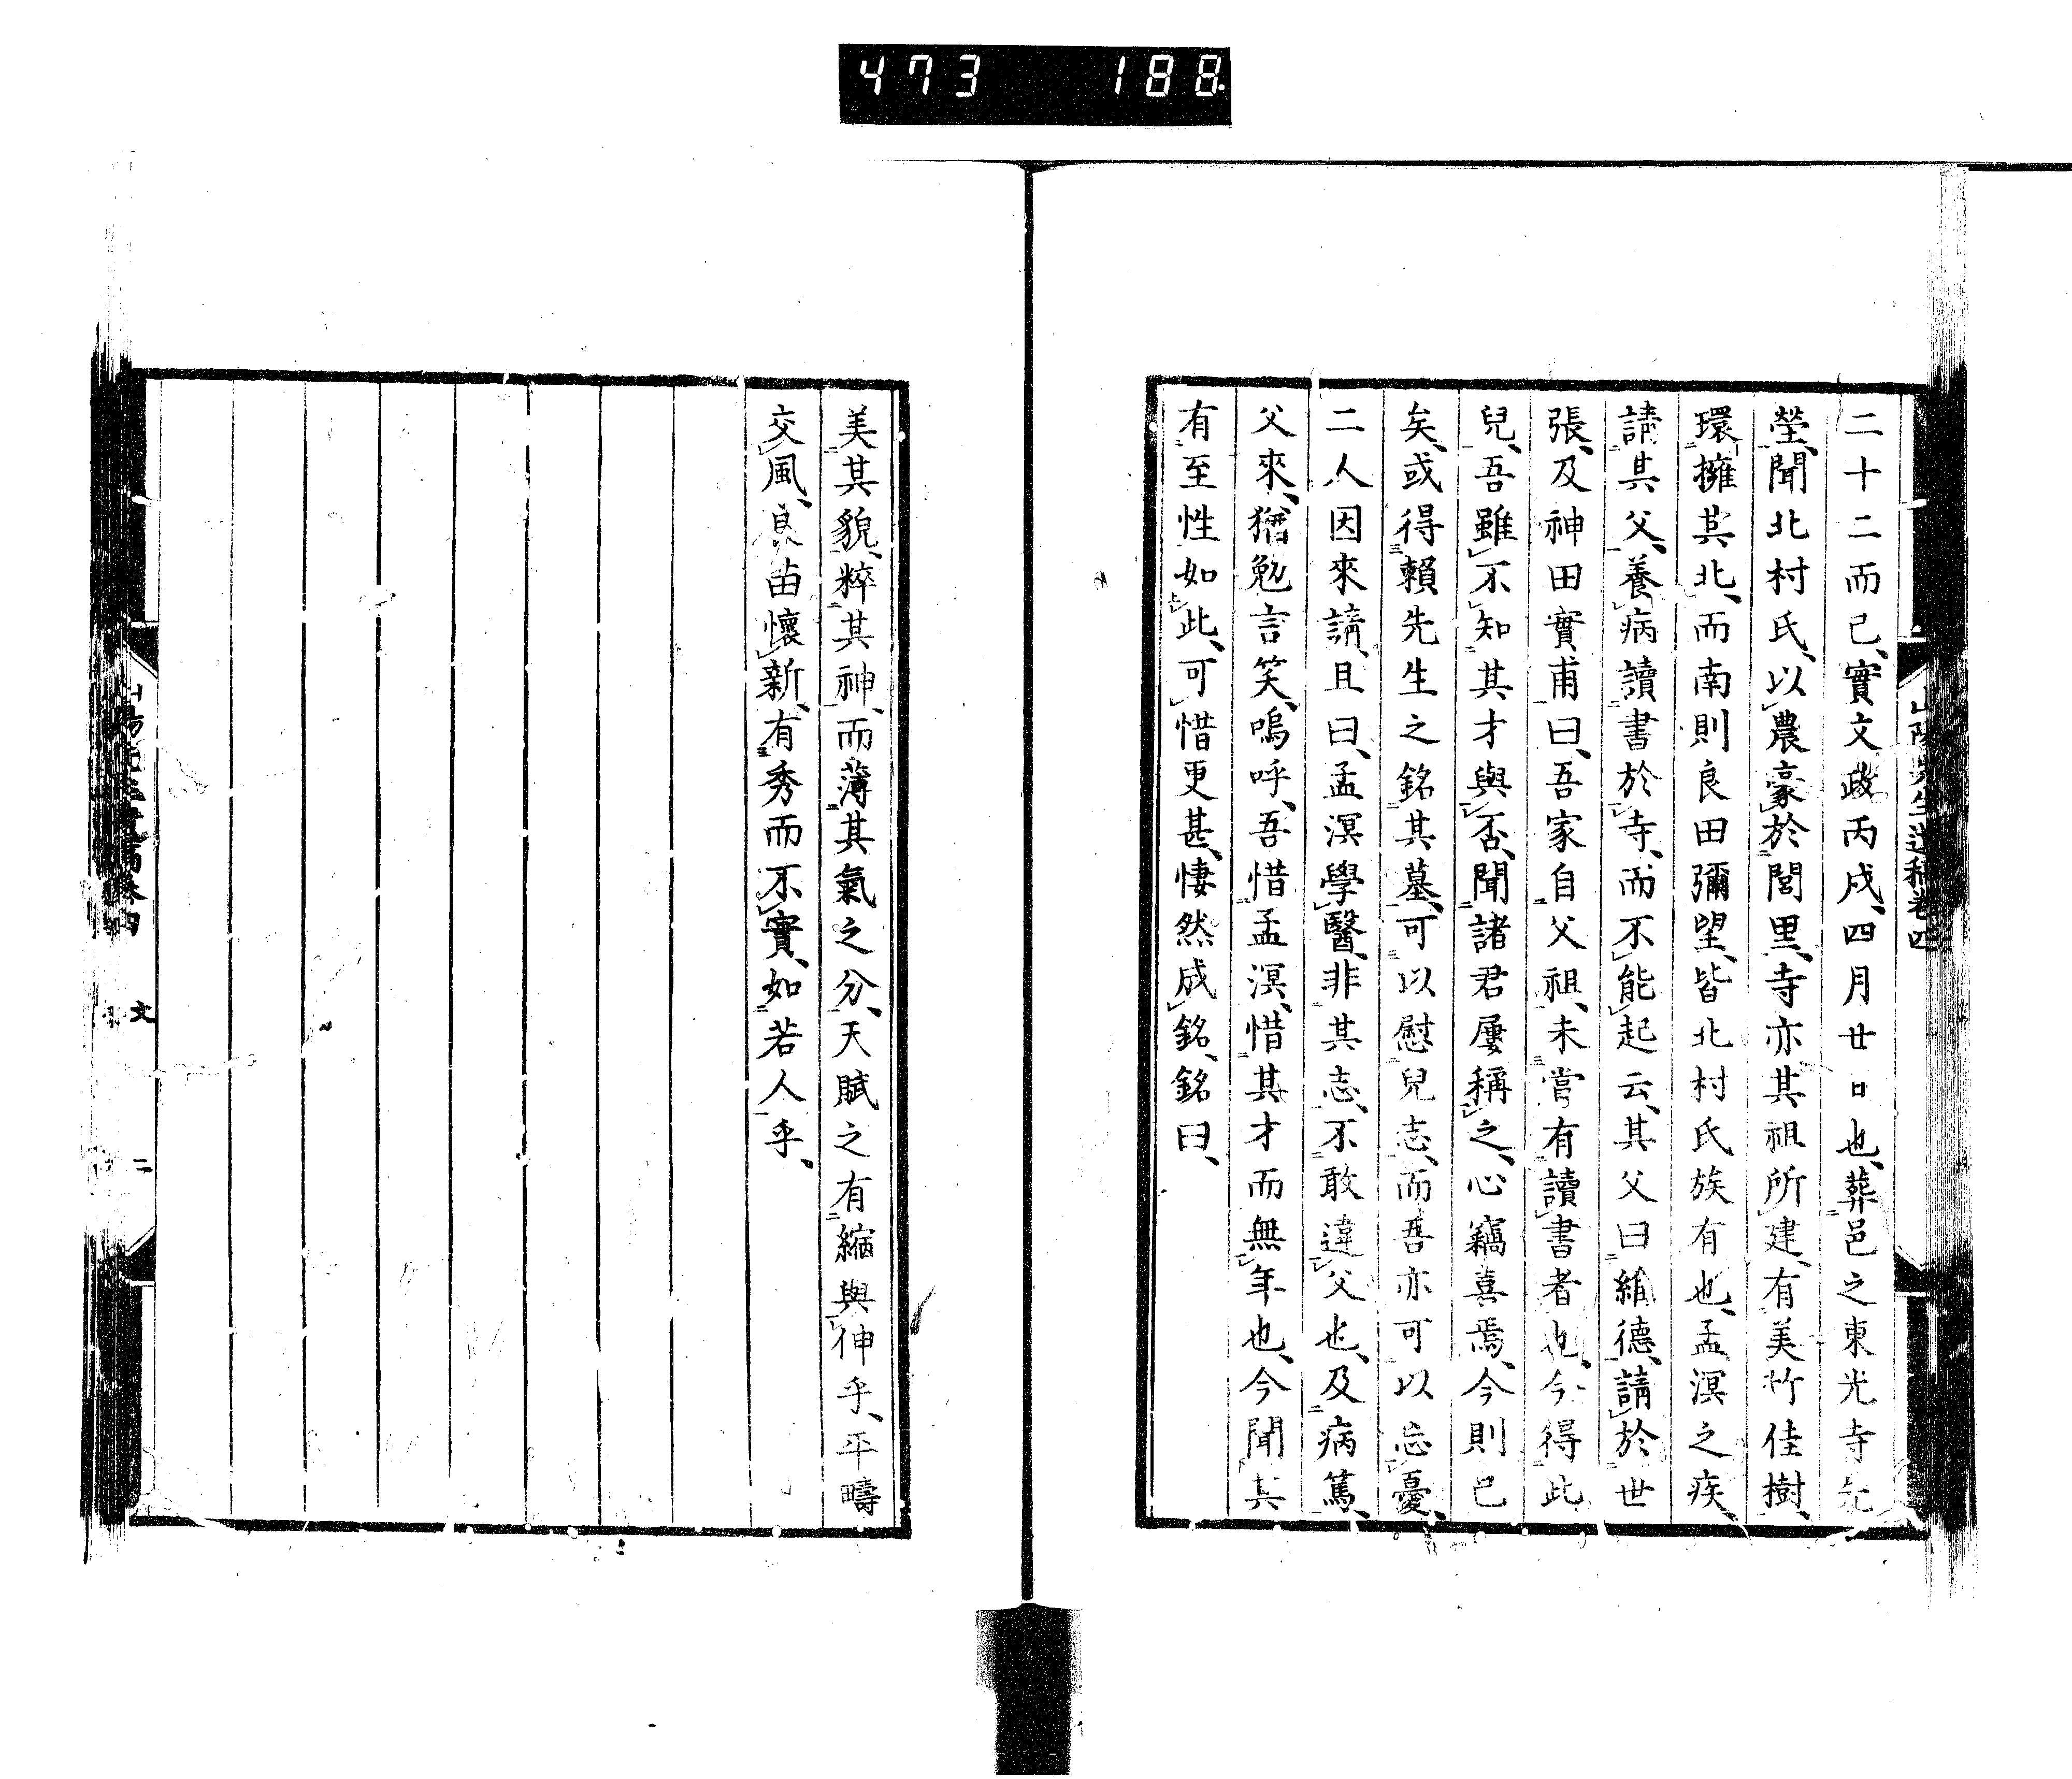 473 188
山陽先生遺稿卷四
二十二而已、實文政丙戌、四月廿日也、葬邑之東光寺先
塋、聞北村氏、以農豪於閭里、寺亦其祖所建、有美竹佳樹、
環擁其北、而南則良田彌望、皆北村氏族有也、孟溟之疾、
請其父、養病讀書於寺、而不能起云、其父曰維德、請於世
張、及神田實甫曰、吾家自父祖、未嘗有讀書者也、今得此
兒、吾雖不知其才與否、聞諸君屢稱之、心竊喜焉、今則已
矣、或得賴先生之銘其墓、可以慰兒志、而吾亦可以忘憂、
二人因來請、且曰、孟溟學醫、非其志、不敢違父也、及病篤、
父來、猶勉言笑、嗚呼、吾惜孟溟、惜其才而無年也、今聞其
有至性如此、可惜更甚、悽然成銘、銘曰、
美其貌、粹其神、而薄其氣之分、天賦之有縮與伸乎、平疇
交風、良苗懷新、有秀而不實、如若人乎、
山陽先生遺稿卷四 文 二